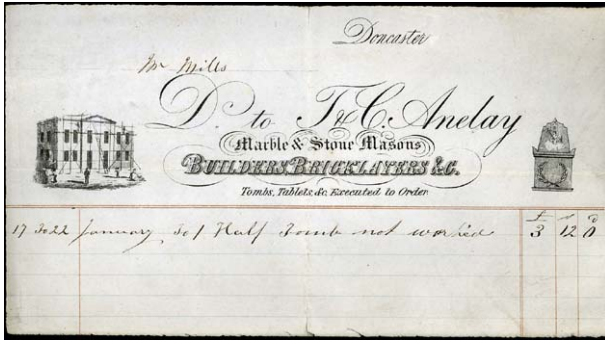 Doncaster
Mr Mills
Dr. to T & C. Anelay
Marble & Stone Masons
BUILDERS, BRICKLAYERS &C.
Tombs, Tablets, &c. Executed to Order
£ s d
17 January To 1 Half Tomb not worked 3 12 0